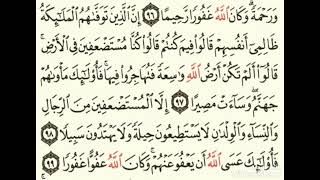 وَرَحْمَةً ۚ وَكَانَ اللَّهُ غَفُورًا رَّحِيمًا ٩٦ إِنَّ الَّذِينَ تَوَفَّىٰهُمُ الْمَلَٰٓئِكَةُ
ظَالِمِىٓ أَنفُسِهِمْ قَالُوا۟ فِيمَ كُنتُمْ ۖ قَالُوا۟ كُنَّا مُسْتَضْعَفِينَ فِى الْأَرْضِ ۚ
قَالُوٓا۟ أَلَمْ تَكُنْ أَرْضُ اللَّهِ وَٰسِعَةً فَتُهَاجِرُوا۟ فِيهَا ۚ فَأُو۟لَٰٓئِكَ مَأْوَىٰهُمْ
جَهَنَّمُ ۖ وَسَآءَتْ مَصِيرًا ٩٧ إِلَّا الْمُسْتَضْعَفِينَ مِنَ الرِّجَالِ
وَالنِّسَآءِ وَالْوِلْدَٰنِ لَا يَسْتَطِيعُونَ حِيلَةً وَلَا يَهْتَدُونَ سَبِيلًا ٩٨
فَأُو۟لَٰٓئِكَ عَسَى اللَّهُ أَن يَعْفُوَ عَنْهُمْ ۚ وَكَانَ اللَّهُ عَفُوًّا غَفُورًا ٩٩